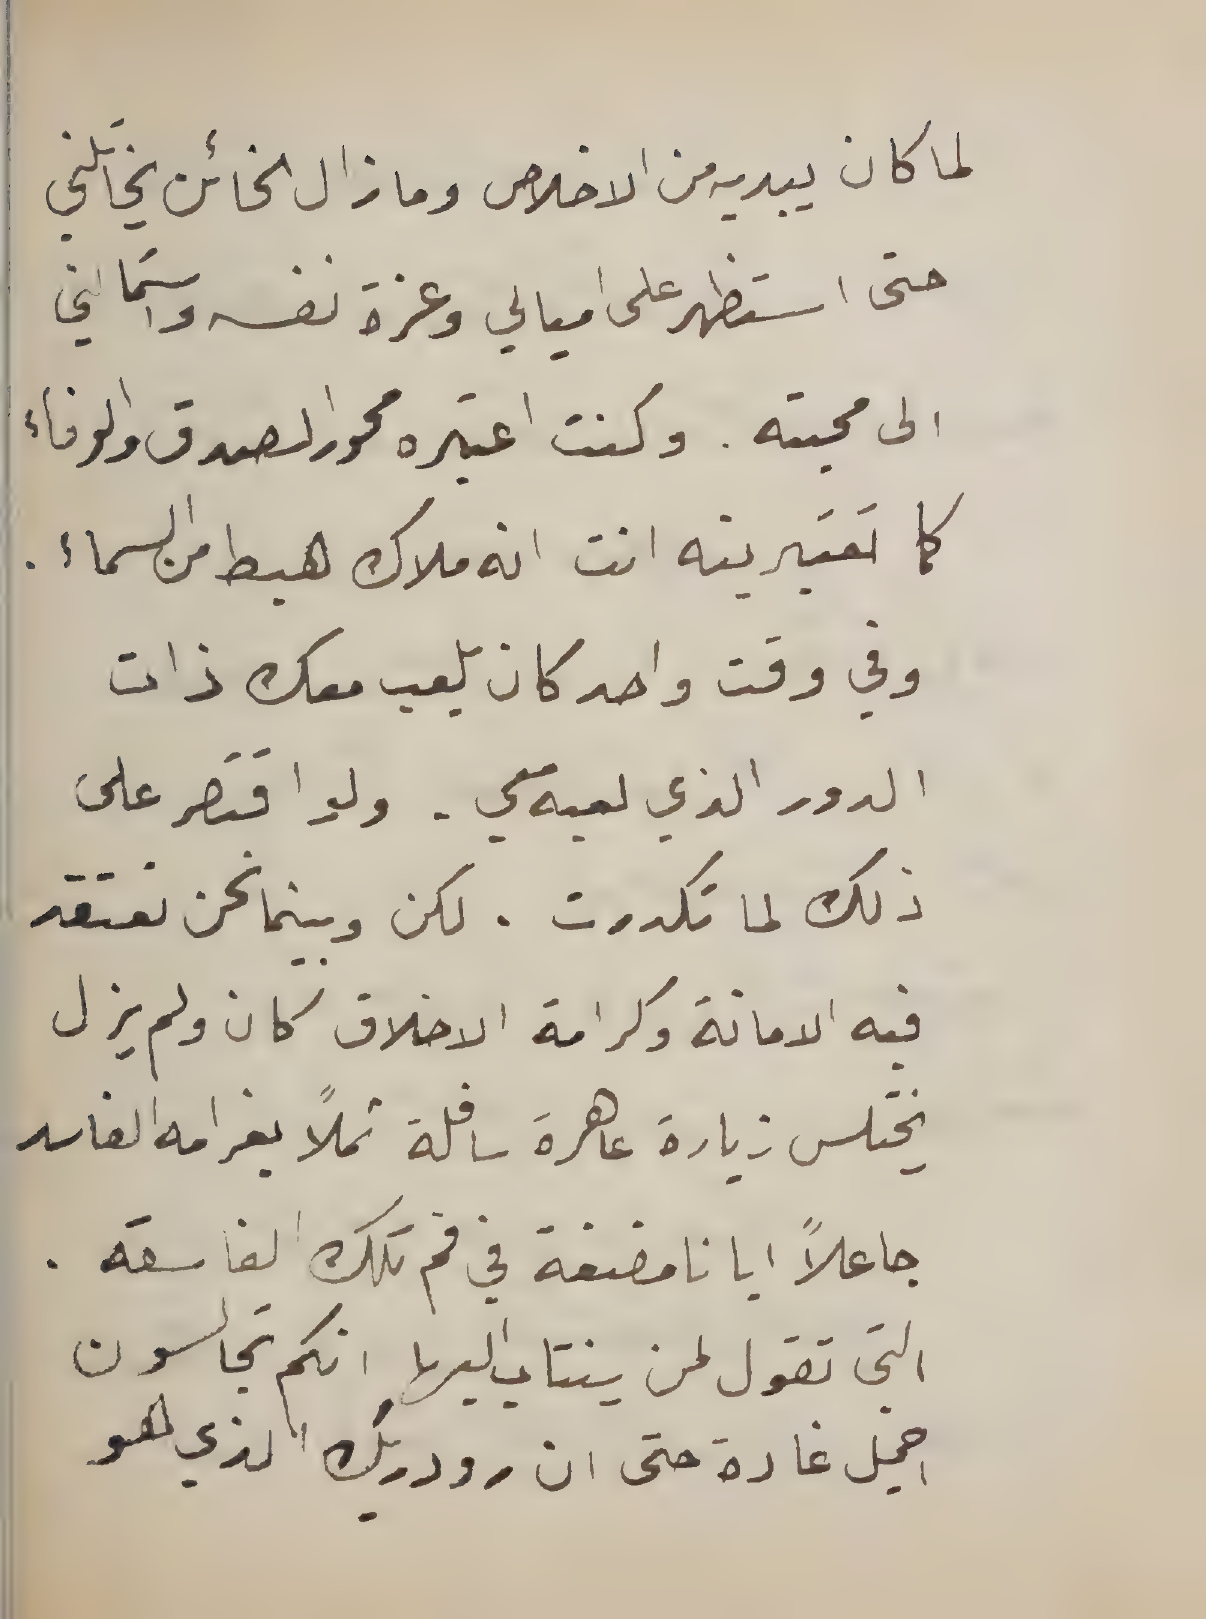 لما كان يبديه من الاخلاص وما زال الخائن يخاتلني
حتى استظهر على اميالي وعزة نفسه واستمالني
الى محبته . وكنت اعتبره محور الصدق والوفاء
كما تعتبرينه انت انه ملاك هبط من السماء .
وفي وقت واحد كان يلعب معك ذات
الدور الذي لعبه معي . ولو اقتصر على
ذلك لما تكدرت . لكن وبينما نحن نعتقد
فيه الامانة وكرامة الاخلاق كان ولم يزل
يختلس زيارة عاهرة سافلة ثملاً بغرامه الفاسد
جاعلاً ايانا مضغة في فم تلك الفاسقة .
التي تقول لمن ينتاب اليها انكم تجالسون
اجمل غادة حتى ان رودريك الذي هو